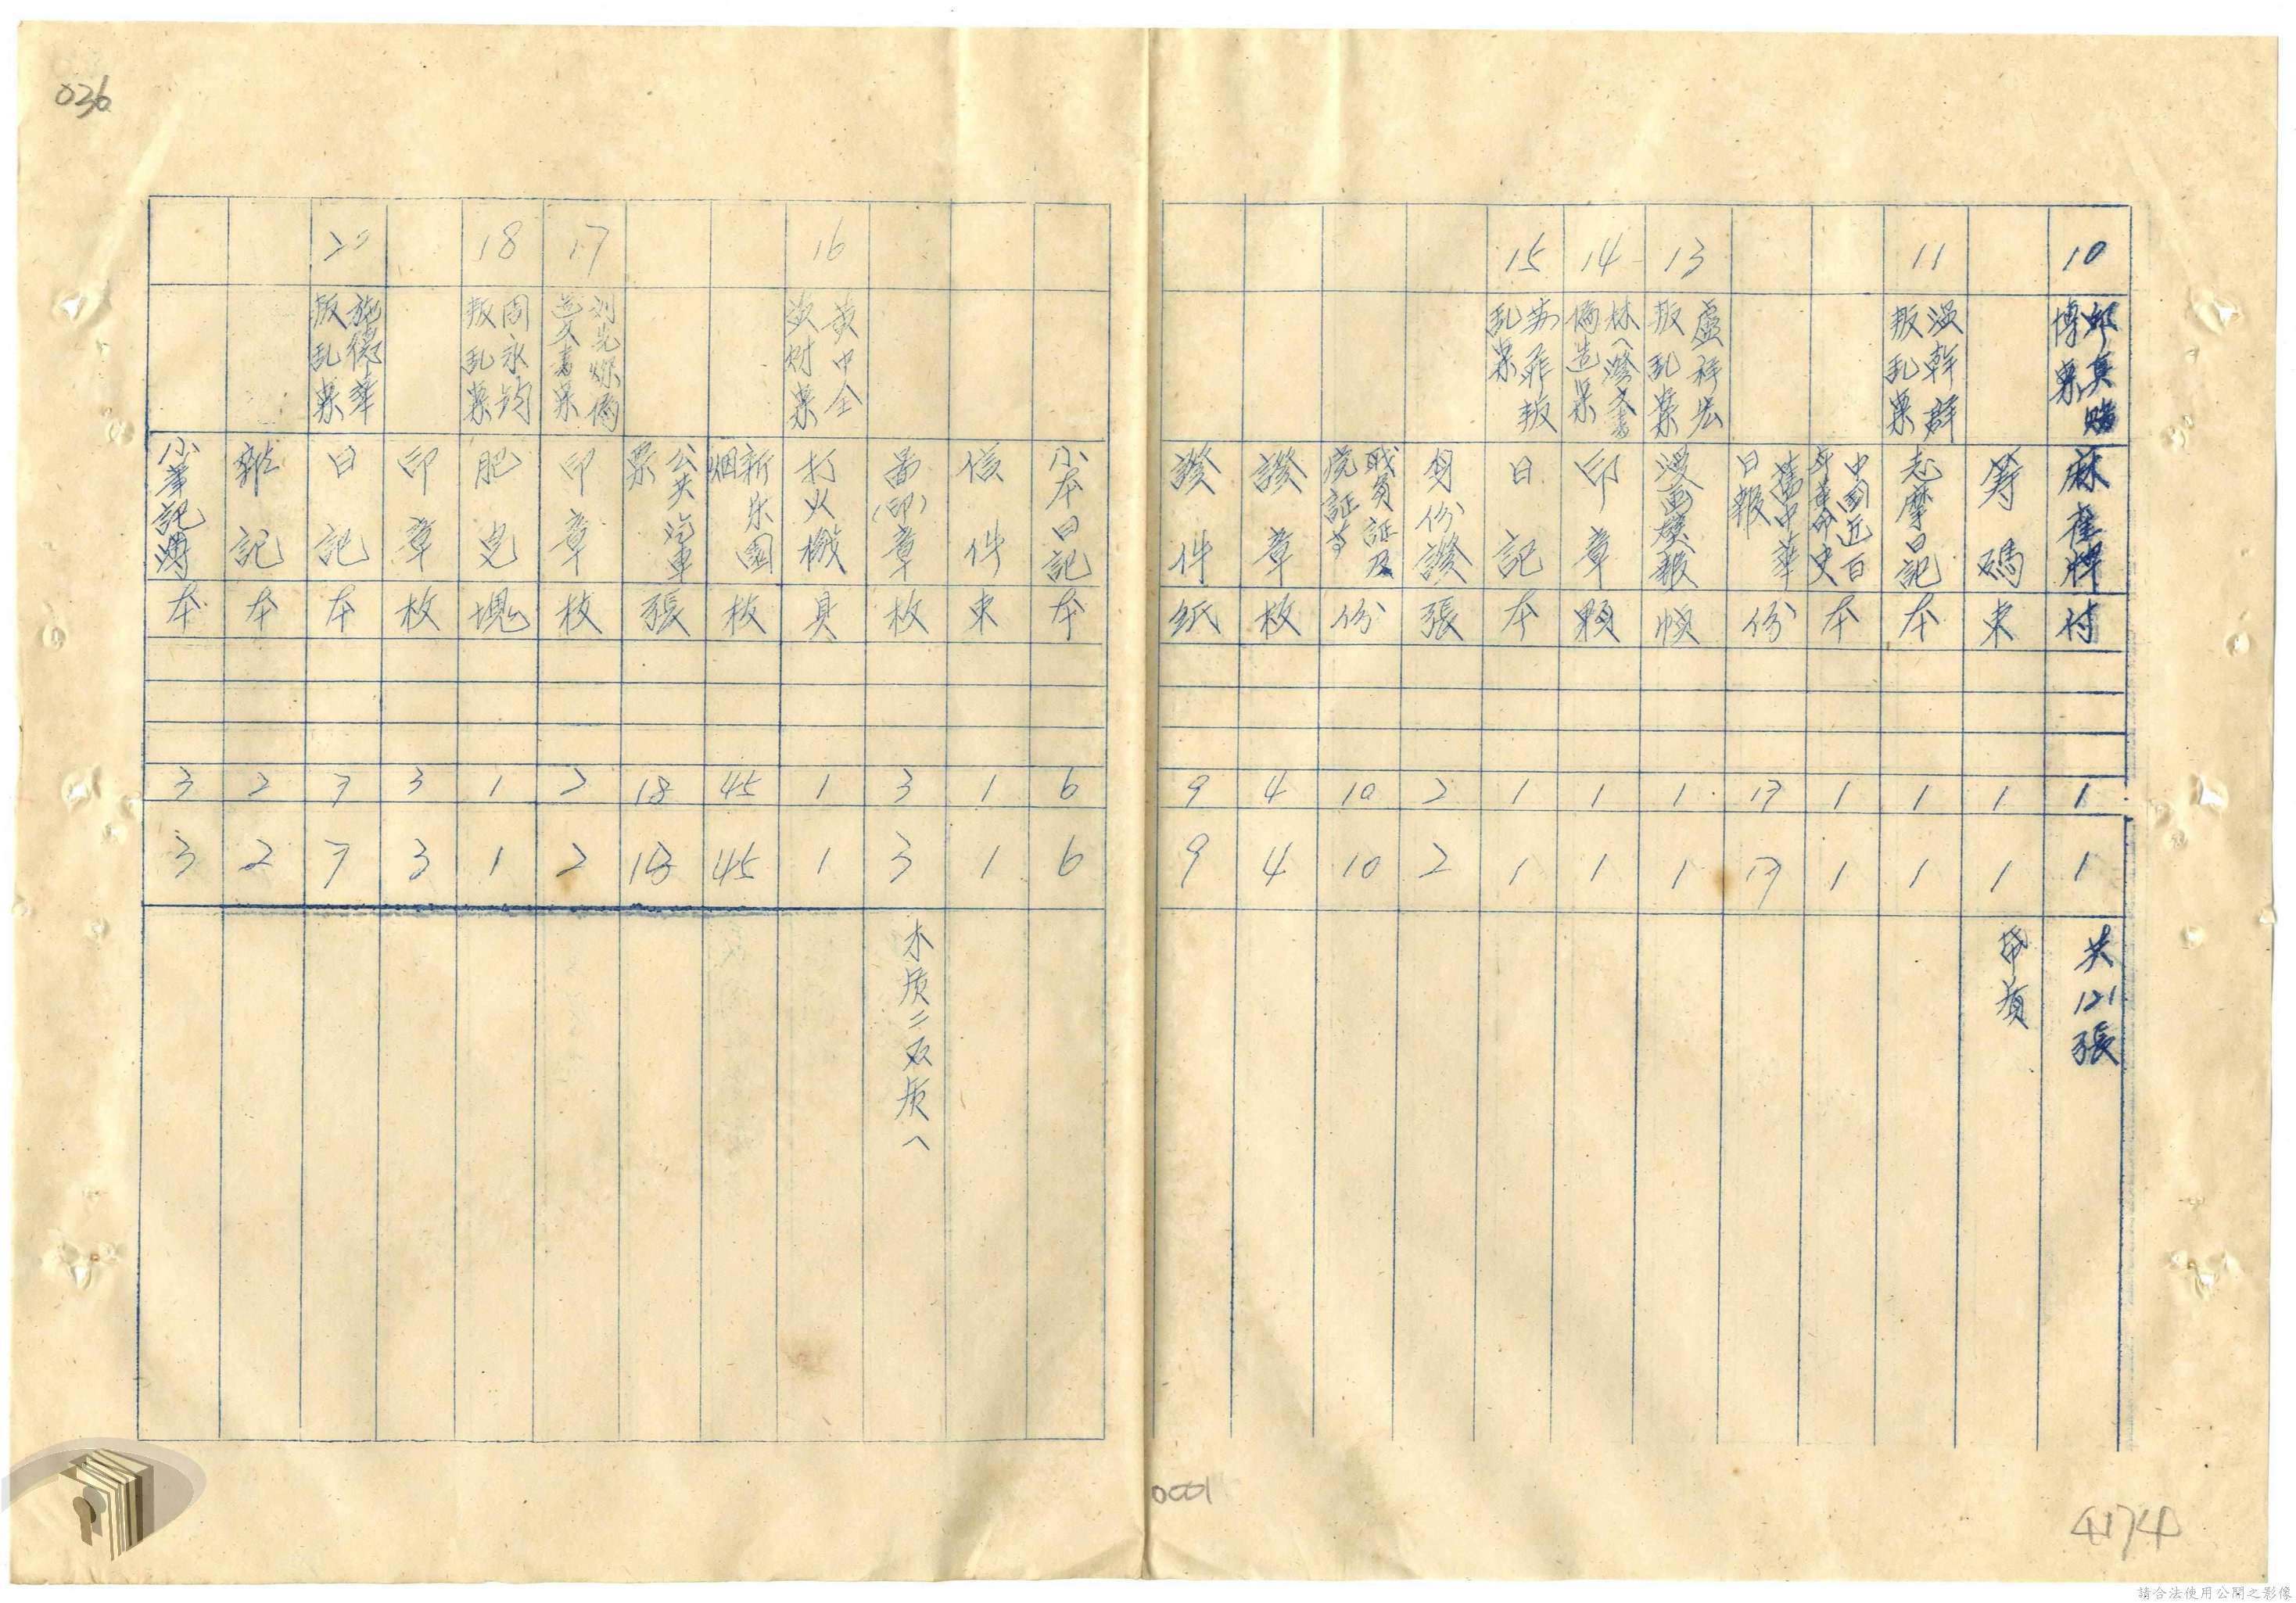 036
10
邱真賭
博案
麻雀牌
付
1
1
共121張
籌碼
束
1
1
11
溫幹群
叛乱案
志摩日記
本
1
1
中國近百
年革命史
本
1
1
舊中華
日報
份
17
17
13
盧祥宏
叛乱案
漫画壁報
幀
1
1
14
偽造案
印章
顆
1
1
15
叛
乱案
日記
本
1
1
身份證
張
2
2
職員証及
份
10
10
證章
枚
4
4
證件
紙
9
9
小本日記
本
6
6
信件
束
1
1
(印)章
枚
3
3
16
黃中全
案
打火機
具
1
1
新乐園
烟
枝
45
45
公共汽車
票
張
18
18
17
刘光燦偽
造文書案
印章
枚
2
2
18
周永鈞
叛乱案
肥皂
塊
1
1
印章
枚
3
3
20
施德華
叛乱案
日記
本
7
7
雜記
本
2
2
小筆記簿
本
3
3
0001
4174
請合法使用公開之影像